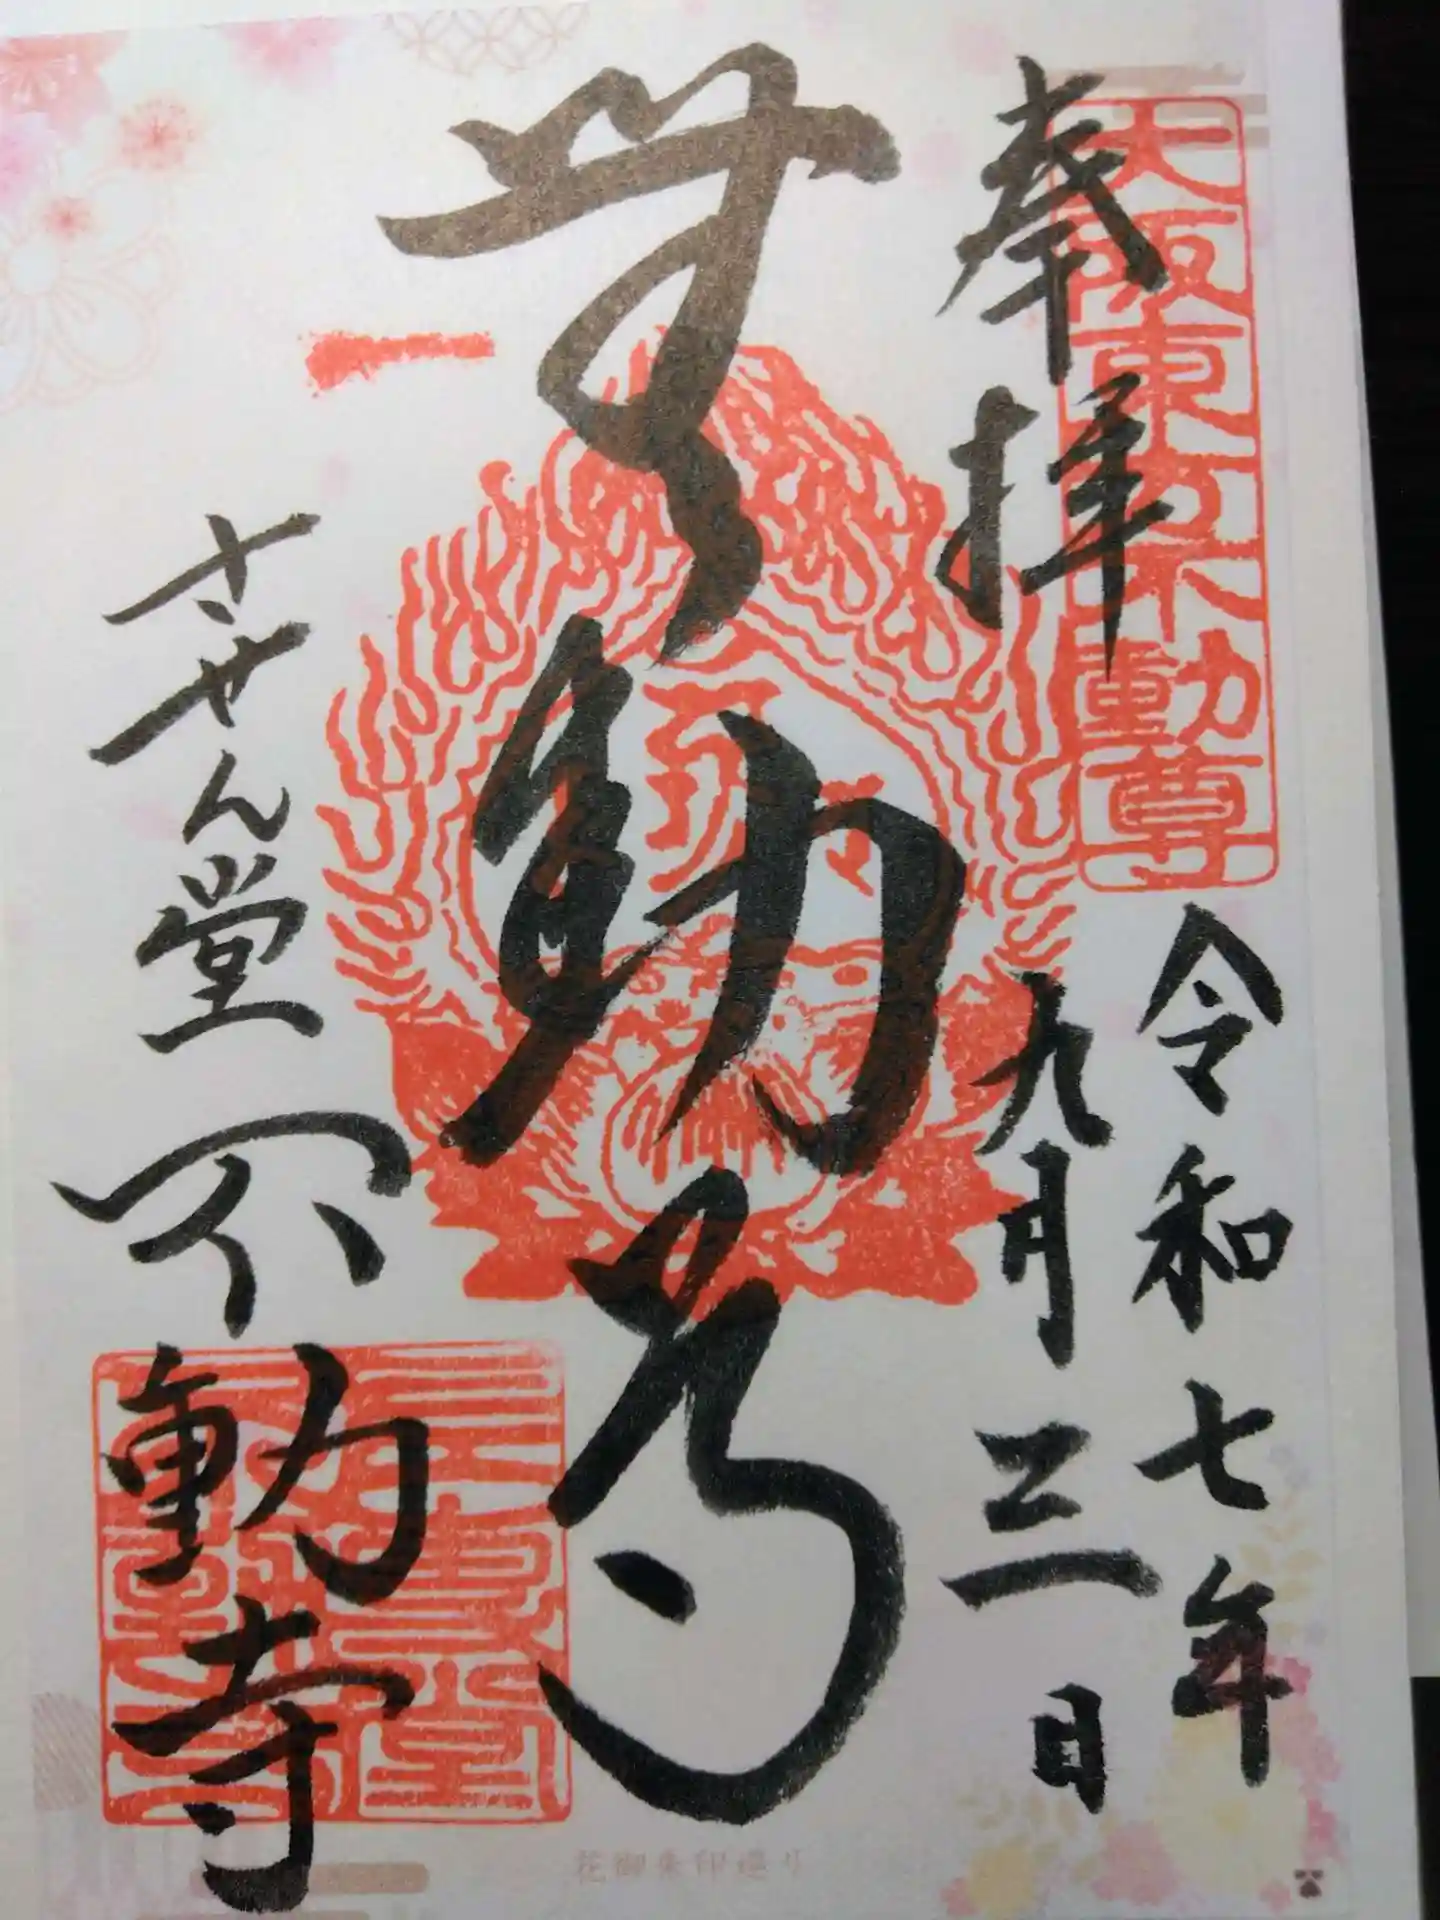 奉拝
大阪東不動尊
令和七年
九月三日
無動尊
させん堂不動寺
花御朱印巡り